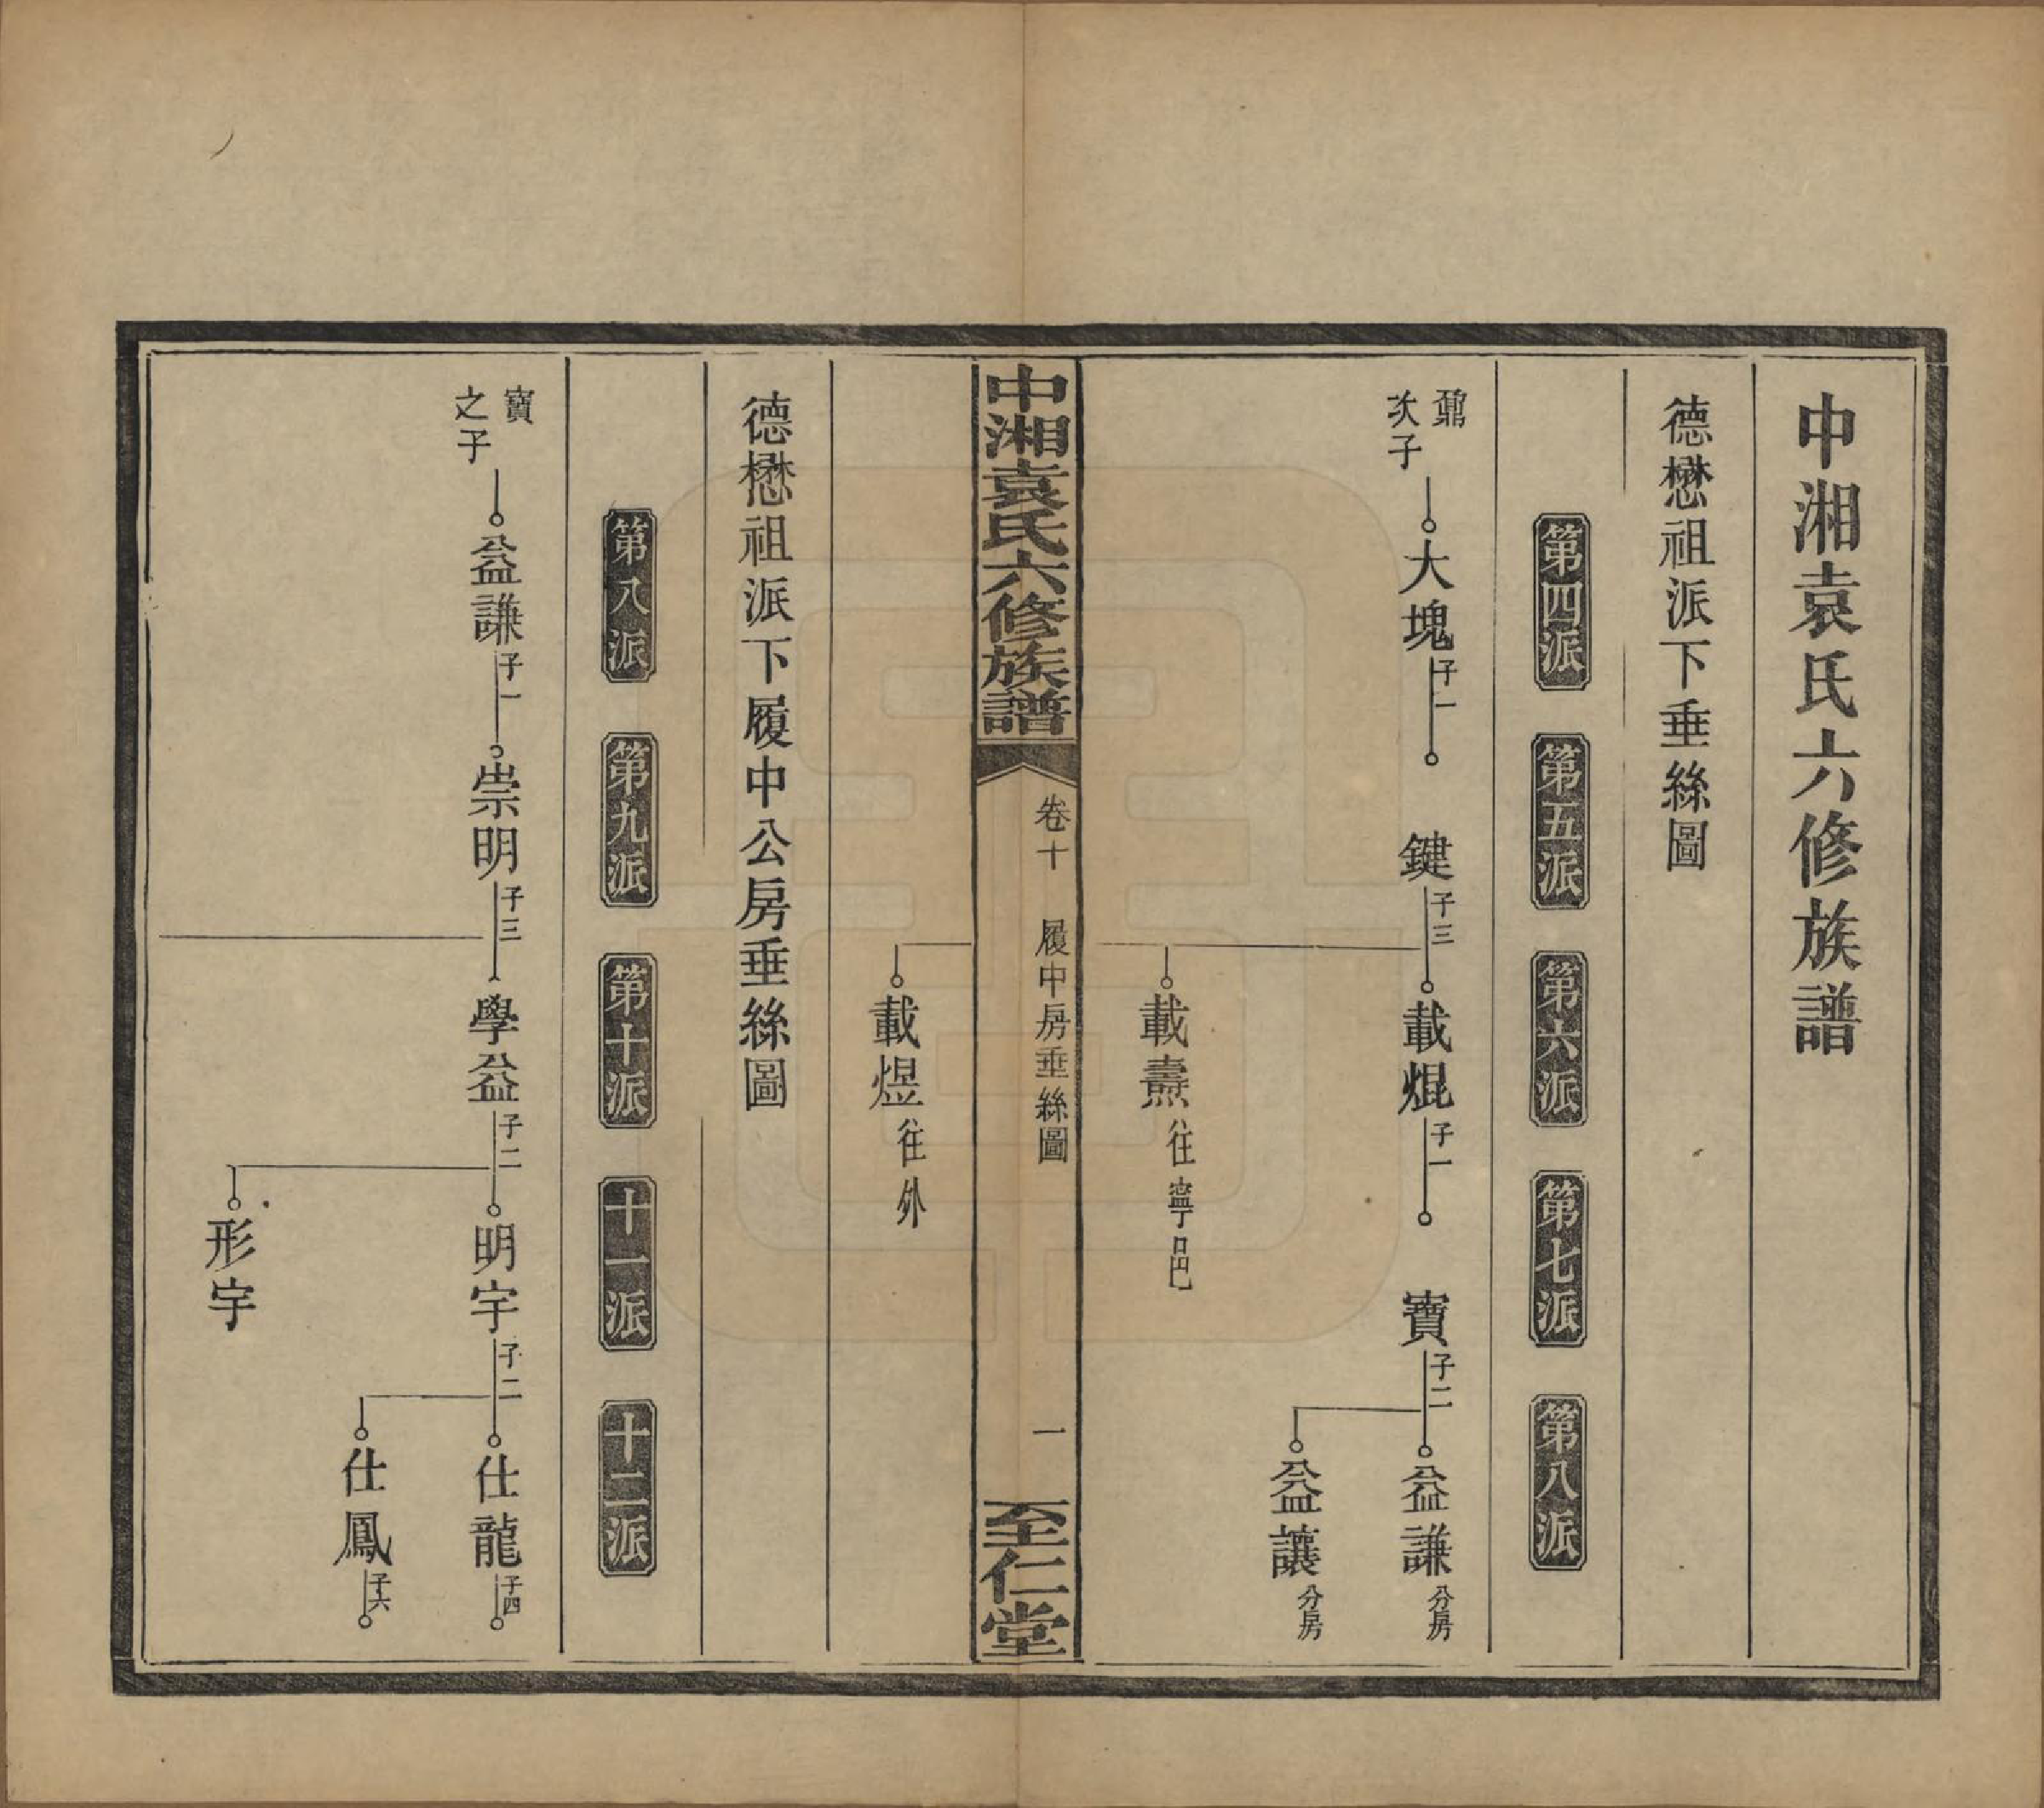 中湘袁氏六修族譜
德懋祖派下垂絲圖
第四派 第五派 第六派 第七派 第八派
鼐次子 大塊 子一 鍵 子三 載焜 子一 寶 子二 益謙 分房
益讓 分房
載燾 往寧邑
中湘袁氏六修族譜 卷十 履中房垂絲圖 一 至仁堂
載煜 往外
德懋祖派下履中公房垂絲圖
第八派 第九派 第十派 十一派 十二派
寶之子 益謙 子一 崇明 子三 學益 子二 明宇 子二 仕龍 子四
仕鳳 子六
形宇